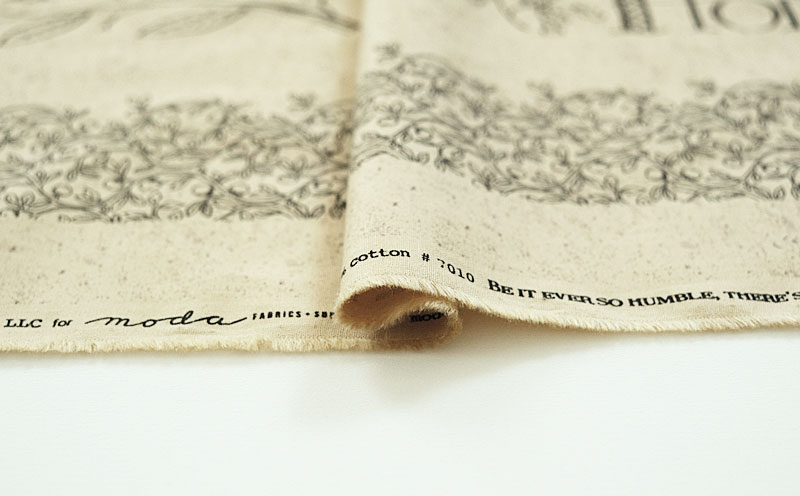 LLC for moda FABRICS + 
cotton # 7010 BE IT EVER SO HUMBLE, THERE'S